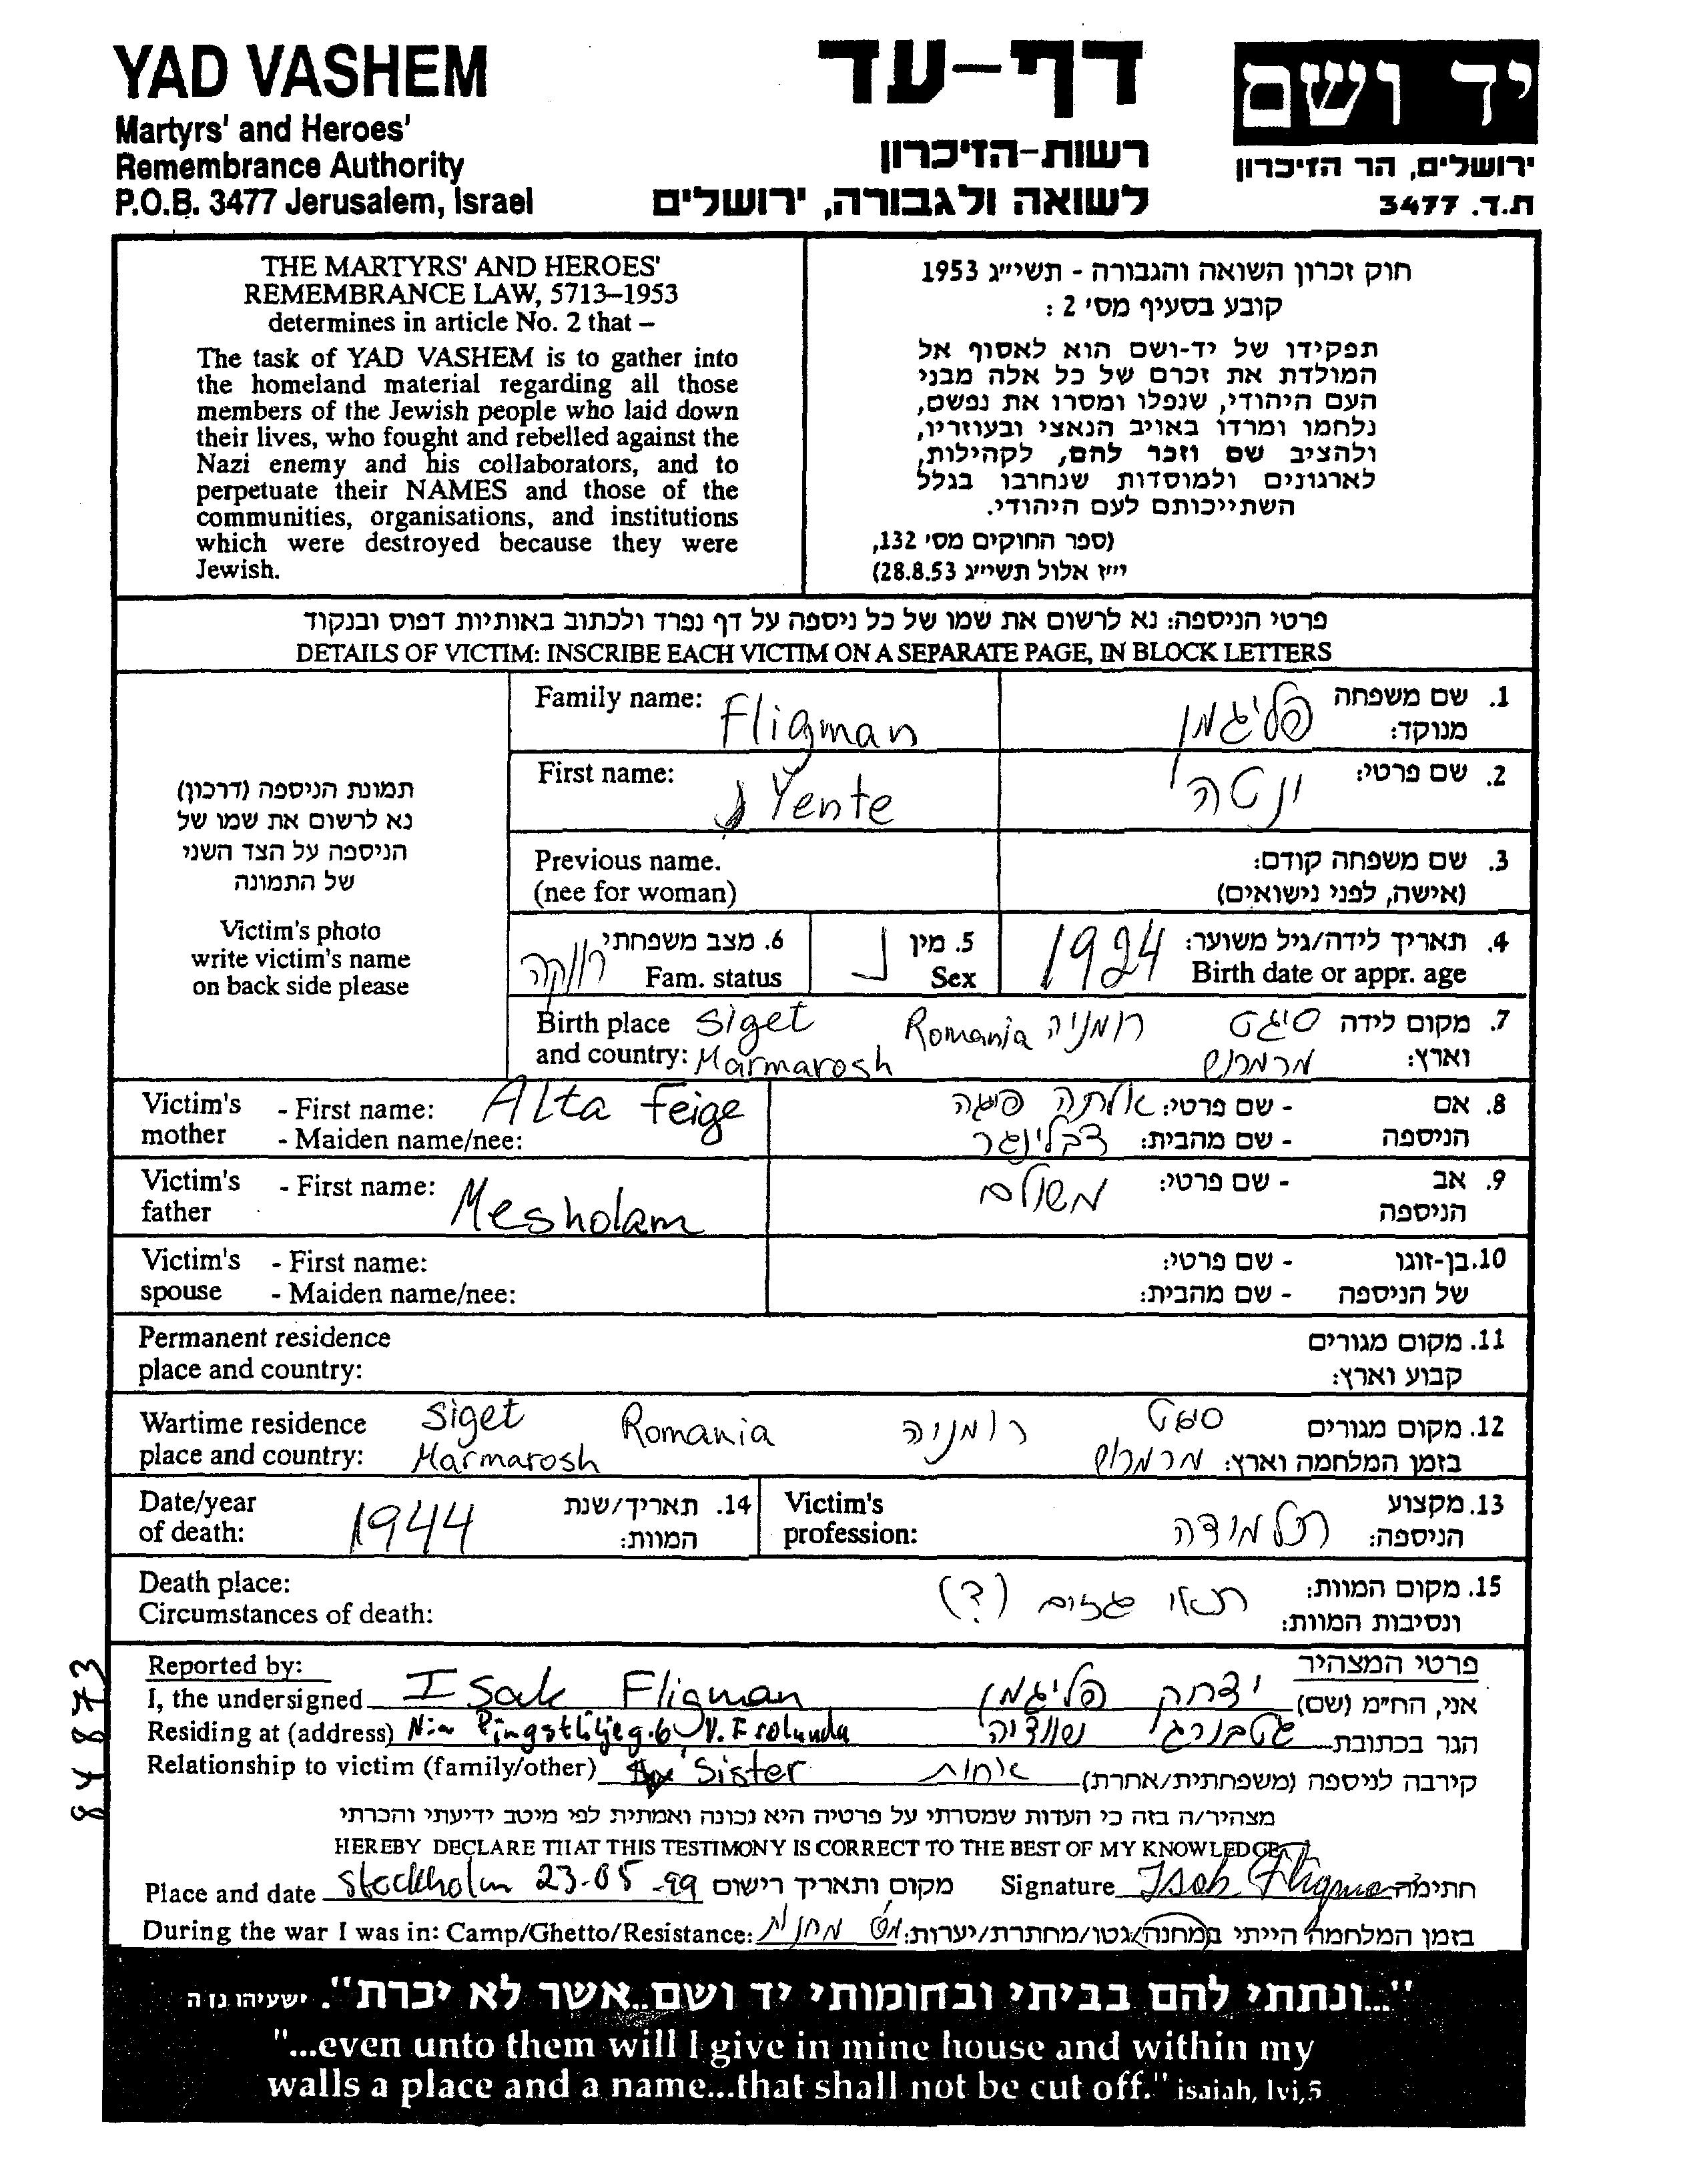 YAD VASHEM
Martyrs' and Heroes'
Remembrance Authority
P.O.B. 3477 Jerusalem, Israel
דף-עד
רשות-הזיכרון
לשואה ולגבורה, ירושלים
יד ושם
ירושלים, הר הזיכרון
ת.ד. 3477
THE MARTYRS' AND HEROES'
REMEMBRANCE LAW, 5713–1953
determines in article No. 2 that –
The task of YAD VASHEM is to gather into
the homeland material regarding all those
members of the Jewish people who laid down
their lives, who fought and rebelled against the
Nazi enemy and his collaborators, and to
perpetuate their NAMES and those of the
communities, organisations, and institutions
which were destroyed because they were
Jewish.
חוק זכרון השואה והגבורה - תשי״ג 1953
קובע בסעיף מס' 2 :
תפקידו של יד-ושם הוא לאסוף אל
המולדת את זכרם של כל אלה מבני
העם היהודי, שנפלו ומסרו את נפשם,
נלחמו ומרדו באויב הנאצי ובעוזריו,
ולהציב שם וזכר להם, לקהילות,
לארגונים ולמוסדות שנחרבו בגלל
השתייכותם לעם היהודי.
(ספר החוקים מס' 132,
י״ז אלול תשי״ג 28.8.53)
פרטי הניספה: נא לרשום את שמו של כל ניספה על דף נפרד ולכתוב באותיות דפוס ובנקוד
DETAILS OF VICTIM: INSCRIBE EACH VICTIM ON A SEPARATE PAGE, IN BLOCK LETTERS
תמונת הניספה (דרכון)
נא לרשום את שמו של
הניספה על הצד השני
של התמונה
Victim's photo
write victim's name
on back side please
Family name: Fligman
1. שם משפחה מנוקד: פליגמן
First name: Yente
2. שם פרטי: ינטה
Previous name.
(nee for woman)
3. שם משפחה קודם:
(אישה, לפני נישואים)
4. תאריך לידה/גיל משוער: 1924
Birth date or appr. age
5. מין נ
Sex
6. מצב משפחתי רווקה
Fam. status
Birth place Siget Romania
and country: Marmarosh
7. מקום לידה סיגט רומניה
וארץ: מרמרוש
Victim's mother - First name: Alta Feige
- Maiden name/nee:
8. אם הניספה - שם פרטי: אלתה פיגה
- שם מהבית: דבלינגר
Victim's father - First name: Mesholam
9. אב הניספה - שם פרטי: משולם
Victim's - First name:
spouse - Maiden name/nee:
10. בן-זוגו - שם פרטי:
של הניספה - שם מהבית:
Permanent residence
place and country:
11. מקום מגורים
קבוע וארץ:
Wartime residence Siget Romania
place and country: Marmarosh
12. מקום מגורים סיגט רומניה
בזמן המלחמה וארץ: מרמרוש
Date/year
of death: 1944
14. תאריך/שנת
המוות:
Victim's
profession:
13. מקצוע
הניספה: תלמידה
Death place:
Circumstances of death:
15. מקום המוות: תאי גזים (?)
ונסיבות המוות:
84873
Reported by:
I, the undersigned Isak Fligman
Residing at (address) Pingstliljeg. 6 V. Frolunda
Relationship to victim (family/other) Sister
פרטי המצהיר
אני, הח״מ (שם) יצחק פליגמן
הגר בכתובת גטבורג שוודיה
קירבה לניספה (משפחתית/אחרת) אחות
מצהיר/ה בזה כי העדות שמסרתי על פרטיה היא נכונה ואמתית לפי מיטב ידיעתי והכרתי
HEREBY DECLARE THAT THIS TESTIMONY IS CORRECT TO THE BEST OF MY KNOWLEDGE
Place and date Stockholm 23-05-99 מקום ותאריך רישום
Signature Isak Fligman חתימה
During the war I was in: Camp/Ghetto/Resistance:
בזמן המלחמה הייתי במחנה/גטו/מחתרת/יערות:
"...ונתתי להם בביתי ובחומותי יד ושם..אשר לא יכרת". ישעיהו נו ה
"...even unto them will I give in mine house and within my
walls a place and a name...that shall not be cut off." isaiah, lvi,5